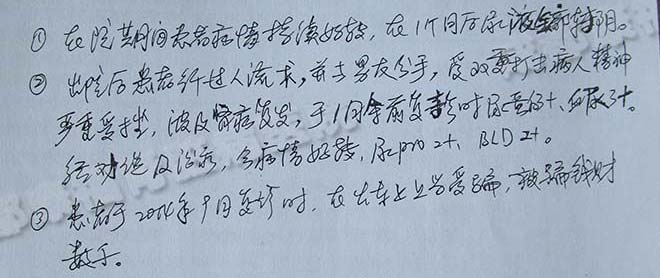 ① 在院期间患者病情持续好转，在1个月后尿液全部转阴。
② 出院后患者经过人流术，并与男友分手，受双重打击病人精神
严重受挫，波及肾病复发，于1月余前复诊时尿蛋白3+、血尿3+。
经对症及治疗，今病情好转，尿pro 2+、BLD 2+。
③ 患者于20 年9月复诊时，在火车上上当受骗，被骗钱财
数千。